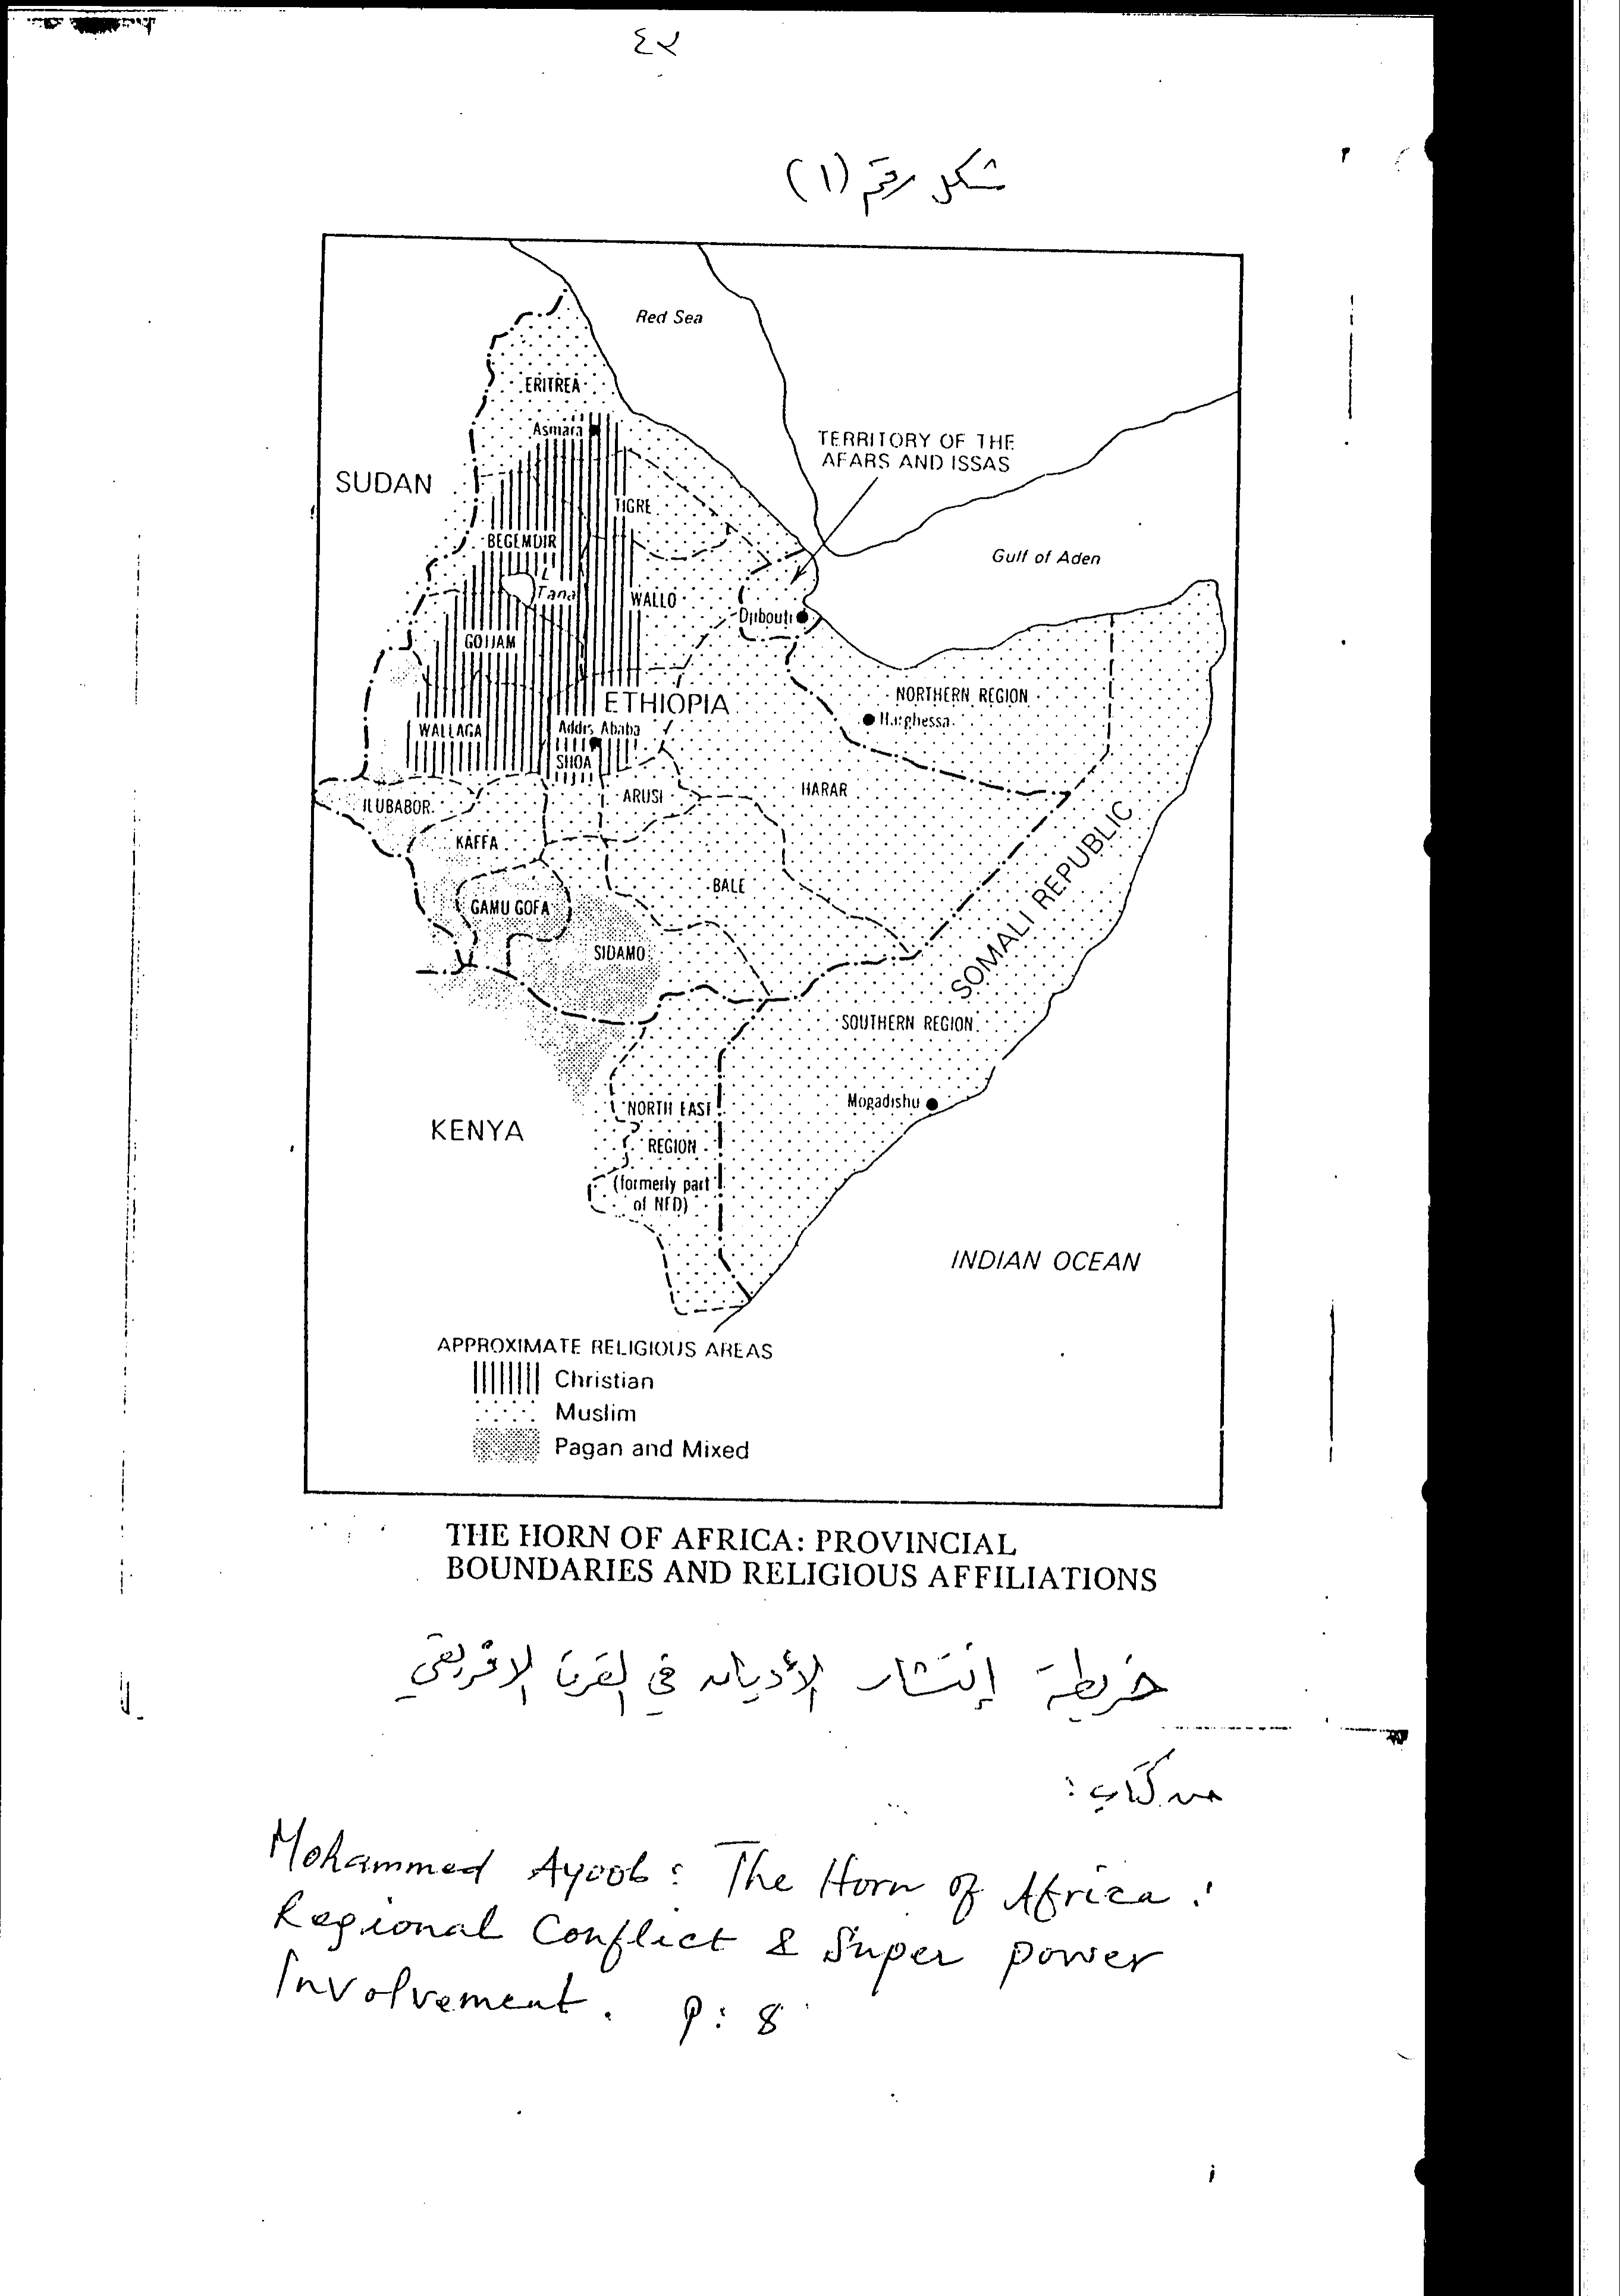 ٤٢
شكل رقم (١)
Red Sea
ERITREA
Asmara
TERRITORY OF THE
AFARS AND ISSAS
SUDAN
TIGRE
BEGEMDIR
L
Tana
Gulf of Aden
WALLO
Djibouti
GOJJAM
ETHIOPIA
NORTHERN REGION
Harghessa
WALLAGA
Addis Ababa
SHOA
HARAR
ARUSI
ILUBABOR
KAFFA
BALE
GAMU GOFA
SIDAMO
SOMALI REPUBLIC
SOUTHERN REGION
Mogadishu
NORTH EAST
REGION
(formerly part
of NFD)
KENYA
INDIAN OCEAN
APPROXIMATE RELIGIOUS AREAS
Christian
Muslim
Pagan and Mixed
THE HORN OF AFRICA: PROVINCIAL
BOUNDARIES AND RELIGIOUS AFFILIATIONS
خريطة إنتشار الأديان في القرن الافريقي
من كتاب :
Mohammed Ayoob : The Horn of Africa :
Regional Conflict & Super power
Involvement . P : 8